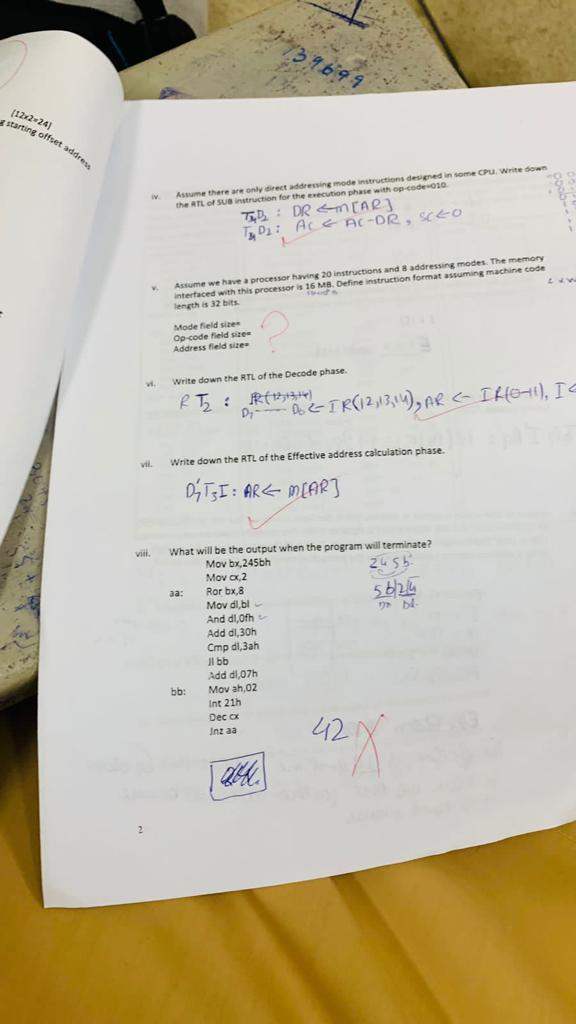 139699
[12x2=24]
starting offset address
iv. Assume there are only direct addressing mode instructions designed in some CPU. Write down
the RTL of SUB instruction for the execution phase with op-code=010.
D2 : DR ← M[AR]
D2 : AC ← AC-DR, SC←0
v. Assume we have a processor having 20 instructions and 8 addressing modes. The memory
interfaced with this processor is 16 MB. Define instruction format assuming machine code
length is 32 bits.
Mode field size=
Op-code field size=
Address field size=
?
vi. Write down the RTL of the Decode phase.
R T2 : D7 ------ D0 ← IR(12,13,14), AR ← IR(0-11), I ←
vii. Write down the RTL of the Effective address calculation phase.
D7'T3I : AR← M[AR]
viii. What will be the output when the program will terminate?
Mov bx,245bh
245b
Mov cx,2
aa: Ror bx,8
5b|24
Mov dl,bl
And dl,0fh
Add dl,30h
Cmp dl,3ah
Jl bb
Add dl,07h
bb: Mov ah,02
Int 21h
Dec cx
Jnz aa
42
2